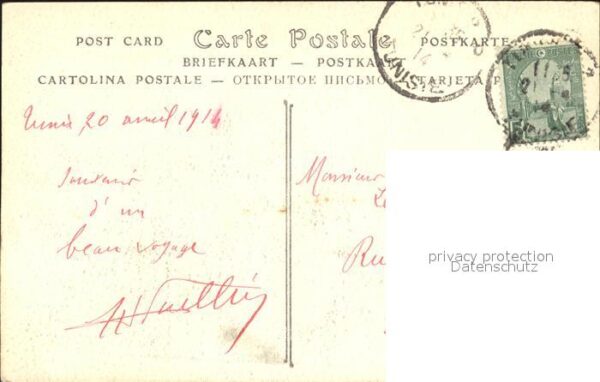 POST CARD Carte Postale POSTKARTE
BRIEFKAART — POSTKA
CARTOLINA POSTALE — ОТКРЫТОЕ ПИСЬМО TARJETA P
TUNISIE
Tunis 20 avril 1914
Souvenir
d'un
beau voyage
Monsieur
privacy protection
Datenschutz